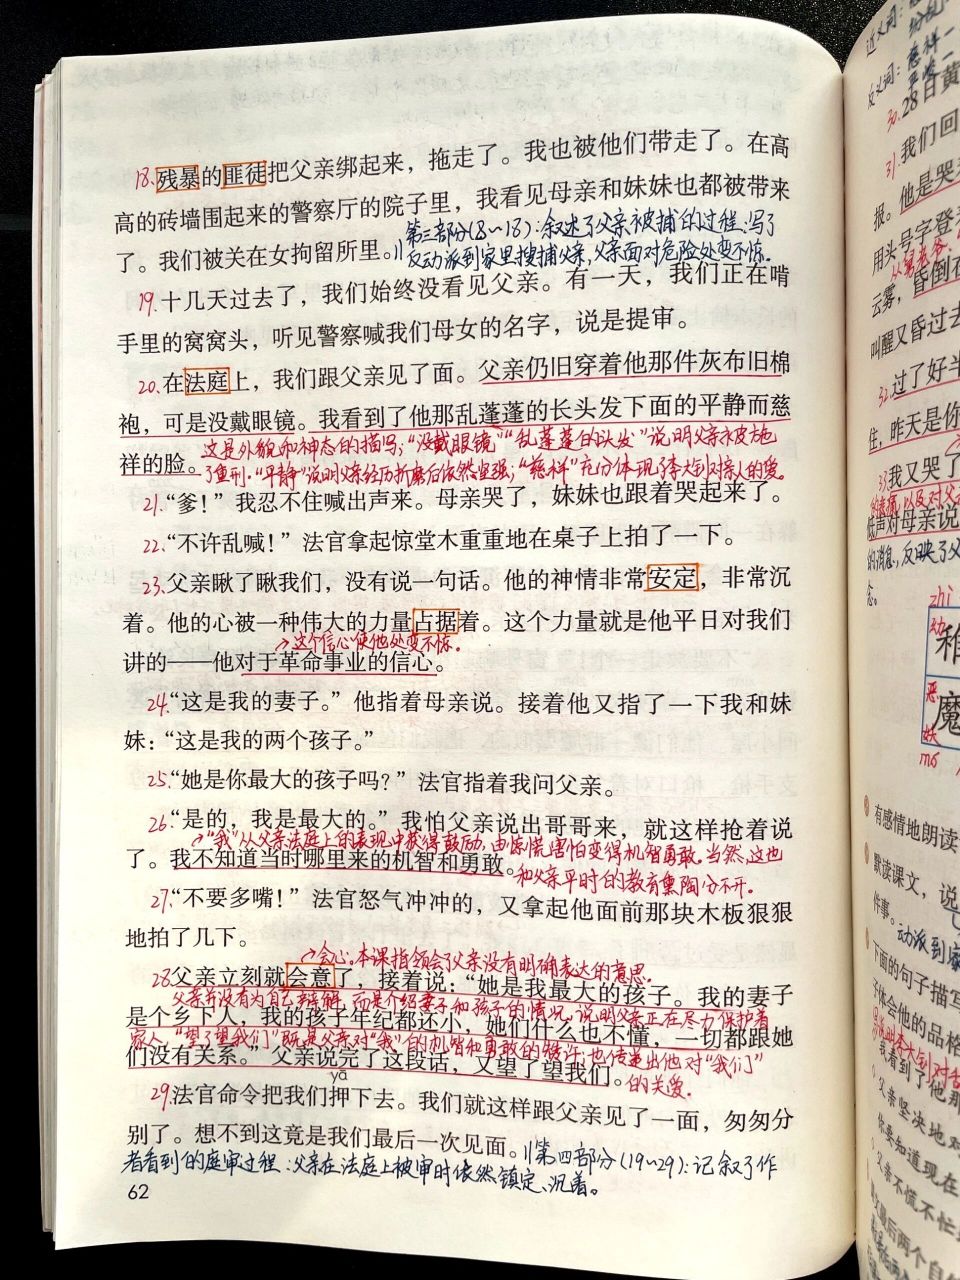 18.残暴的匪徒把父亲绑起来，拖走了。我也被他们带走了。在高
高的砖墙围起来的警察厅的院子里，我看见母亲和妹妹也都被带来
第三部分(8～18)：叙述了父亲被捕的过程，写了
了。我们被关在女拘留所里。//
反动派到家里搜捕父亲，父亲面对危险处变不惊。
19.十几天过去了，我们始终没看见父亲。有一天，我们正在啃
手里的窝窝头，听见警察喊我们母女的名字，说是提审。
20.在法庭上，我们跟父亲见了面。父亲仍旧穿着他那件灰布旧棉
袍，可是没戴眼镜。我看到了他那乱蓬蓬的长头发下面的平静而慈
这是外貌和神态的描写；“没戴眼镜”“乱蓬蓬的头发”说明父亲被施
祥的脸。
了重刑。“平静”说明父亲经历折磨后依然坚强；“慈祥”充分体现了李大钊对亲人的爱。
21.“爹！”我忍不住喊出声来。母亲哭了，妹妹也跟着哭起来了。
22.“不许乱喊！”法官拿起惊堂木重重地在桌子上拍了一下。
23.父亲瞅了瞅我们，没有说一句话。他的神情非常安定，非常沉
着。他的心被一种伟大的力量占据着。这个力量就是他平日对我们
→这个信心使他处变不惊。
讲的——他对于革命事业的信心。
24.“这是我的妻子。”他指着母亲说。接着他又指了一下我和妹
妹：“这是我的两个孩子。”
25.“她是你最大的孩子吗？”法官指着我问父亲。
26.“是的，我是最大的。”我怕父亲说出哥哥来，就这样抢着说
→“我”从父亲法庭上的表现中获得鼓励，由惊慌害怕变得机智勇敢。当然，这也
了。我不知道当时哪里来的机智和勇敢。
和父亲平时的教育熏陶分不开。
27.“不要多嘴！”法官怒气冲冲的，又拿起他面前那块木板狠狠
地拍了几下。
→会心。本课指领会了父亲没有明确表达的意思。
28.父亲立刻就会意了，接着说：“她是我最大的孩子。我的妻子
父亲并没有为自己辩解，而是介绍妻子和孩子的情况，说明父亲正在尽力保护着
是个乡下人，我的孩子年纪都还小，她们什么也不懂，一切都跟她
家人。“望了望我们”既是父亲对“我”的机智和勇敢的赞许；也传递出他对“我们”
们没有关系。”父亲说完了这段话，又望了望我们。
的关爱。
yā
29.法官命令把我们押下去。我们就这样跟父亲见了一面，匆匆分
别了。想不到这竟是我们最后一次见面。//第四部分(19～29)：记叙了作
者看到的庭审过程：父亲在法庭上被审时依然镇定、沉着。
62
近义词：
反义词：
慈祥—
30.28日黄
31.我们回
他是哭
报。
用头号字登
云雾，昏倒在
叫醒又昏过去
32.过了好半
住，昨天是你
33.我又哭了
低声对母亲说
的消息，反映了父
念。
zhì
幼
稚
恶
魔
mó
有感情地朗读
默读课文，说
件事。
动派到家
下面的句子描写
体会他的品格
我看到了他那
父亲坚决地对
你要知道现在
父亲不慌不忙
最后两个自